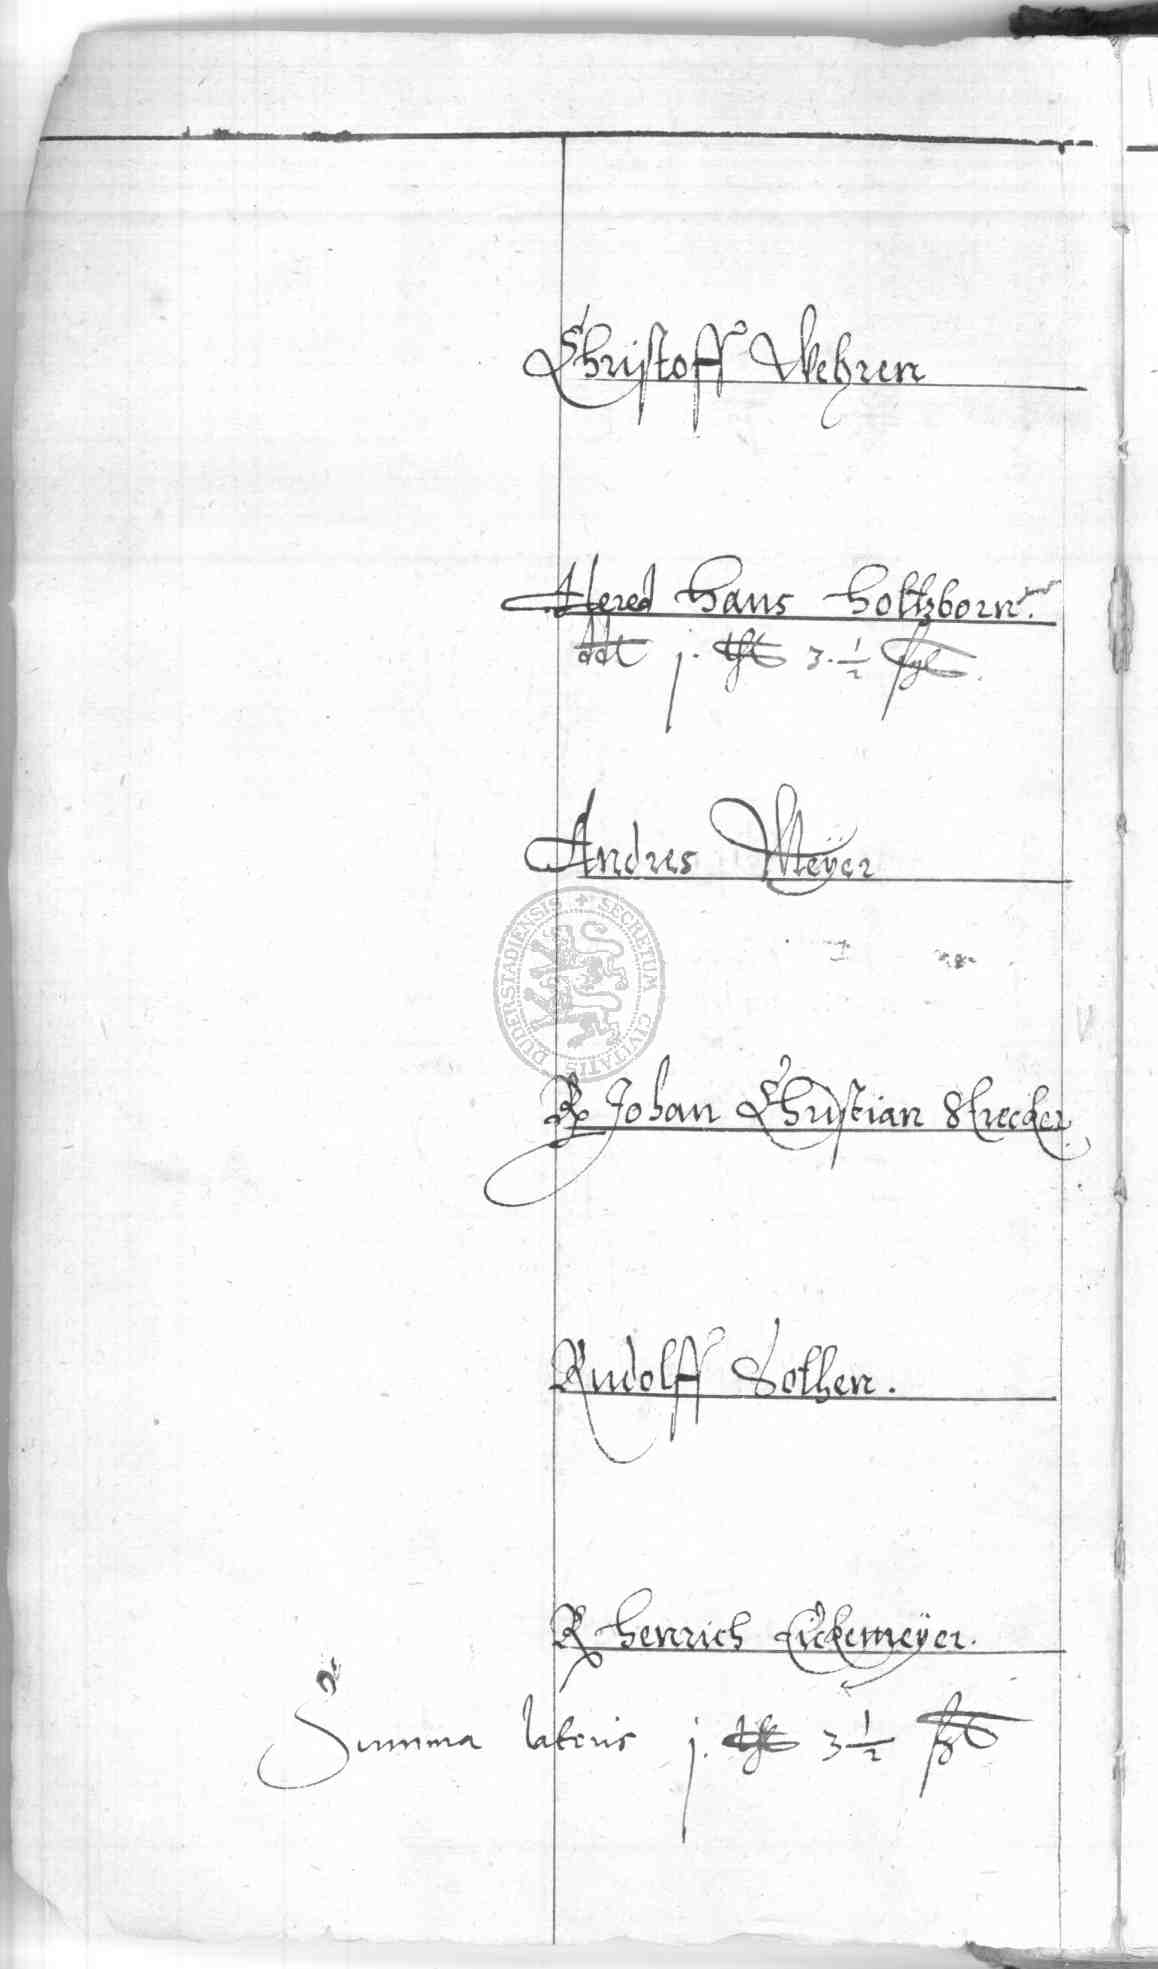 Christoff Wehren
Hered Hans Holtzborn.
ddt j. thl 3. 1/2 ßgl.
Andres Meÿer
DUDERSTADIENSIS + SECRETUM CIVITATIS
R Johan Christian Strecker
Rudolff Sothen.
R Henrich Eickemeÿer.
Summa lateris j. thl 3 1/2 ßgl